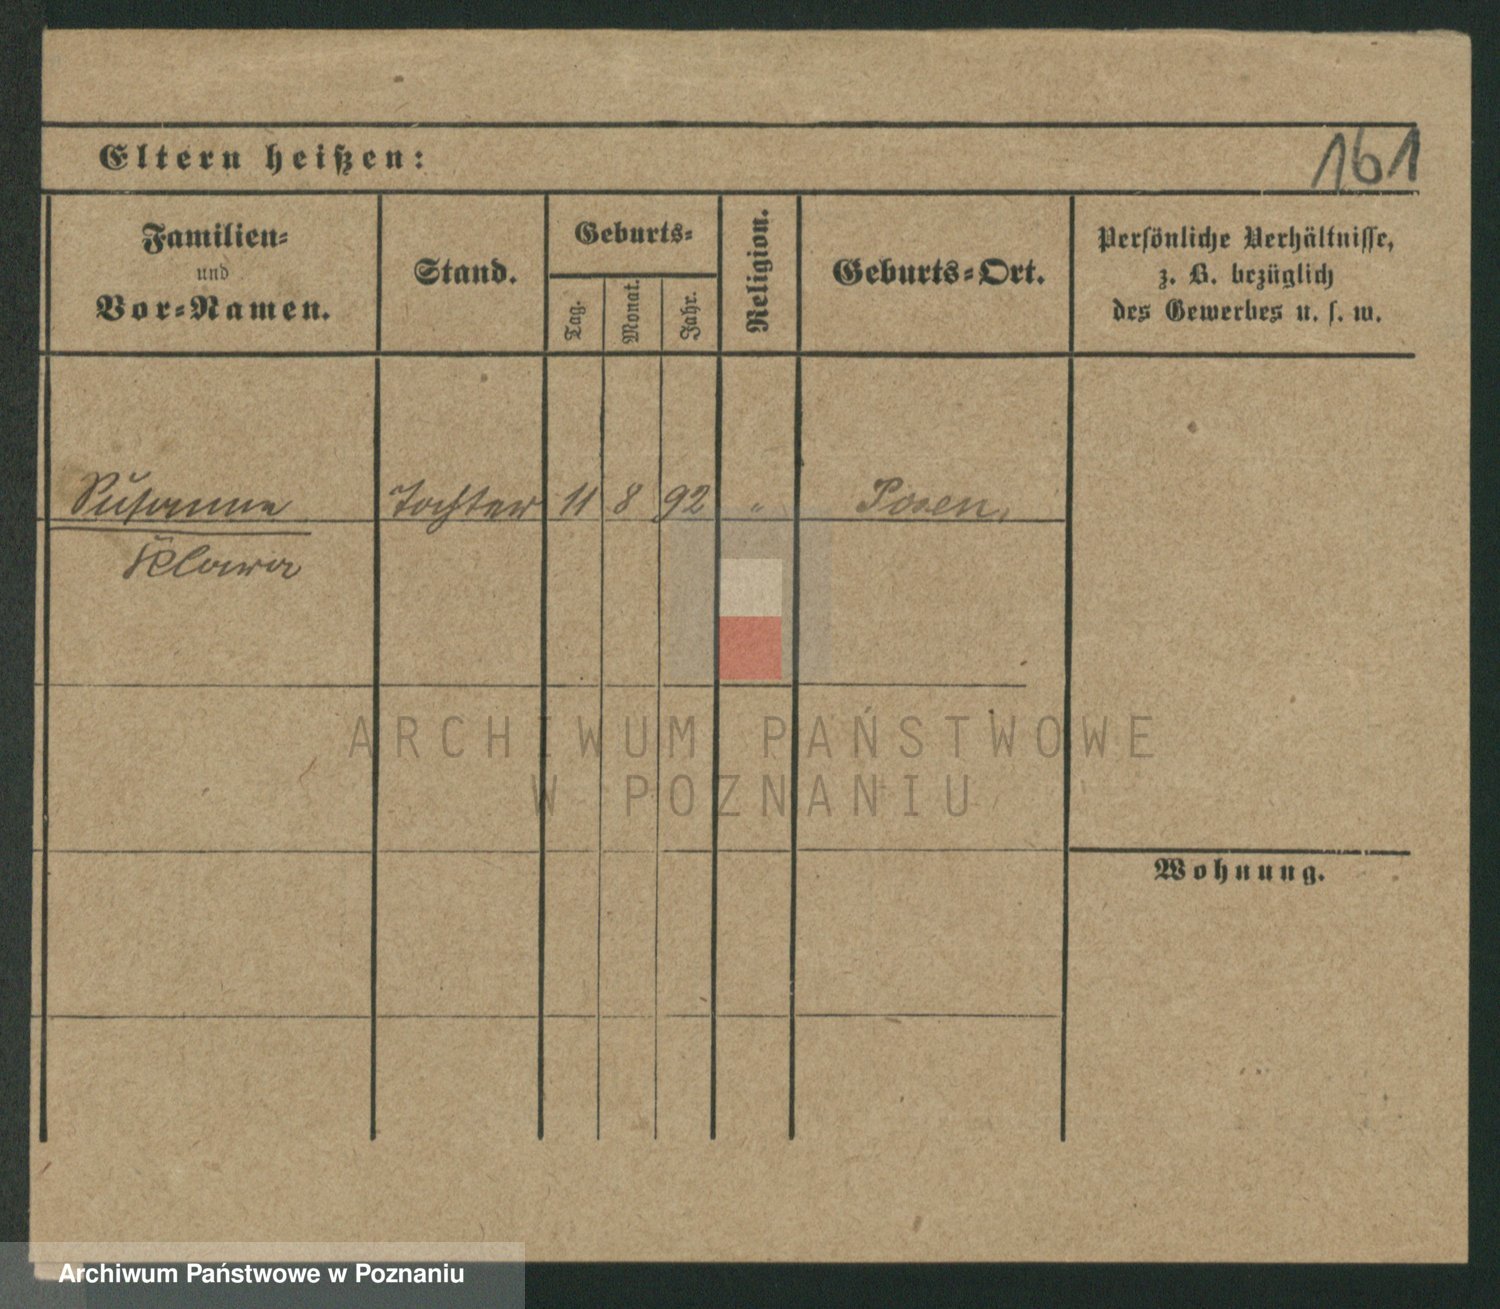 161
Eltern heißen:
Familien-
und
Vor-Namen.
Stand.
Geburts-
Tag.
Monat.
Jahr.
Religion.
Geburts-Ort.
Persönliche Verhältnisse,
z. B. bezüglich
des Gewerbes u. s. w.
Susanne Tochter 11 8 92 " Posen,
Klara
ARCHIWUM PAŃSTWOWE
W POZNANIU
Wohnung.
Archiwum Państwowe w Poznaniu